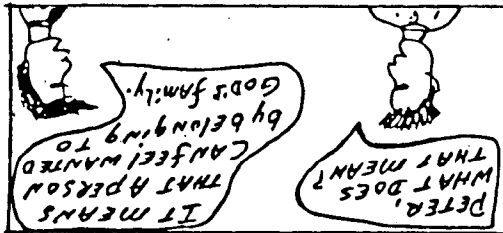 PETER,
WHAT DOES
THAT MEAN?
IT MEANS
THAT A PERSON
CAN feel WANTED
by belonging TO
GOD'S family.